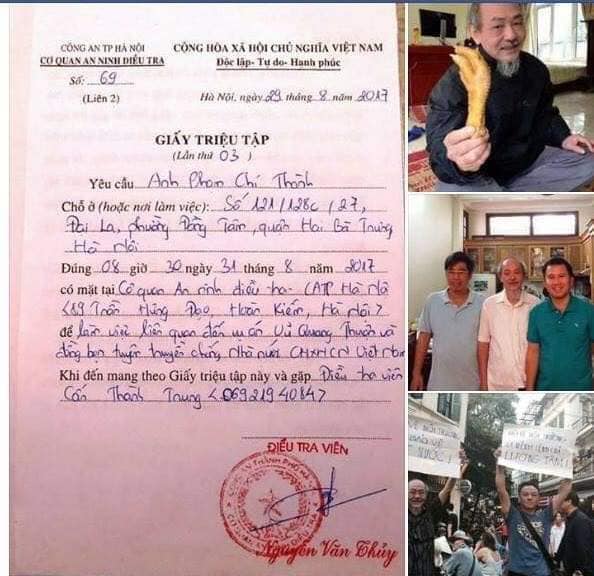 CÔNG AN TP HÀ NỘI
CƠ QUAN AN NINH ĐIỀU TRA
Số: 69
(Liên 2)
CỘNG HÒA XÃ HỘI CHỦ NGHĨA VIỆT NAM
Độc lập- Tự do- Hạnh phúc
Hà Nội, ngày 29 tháng 8 năm 2017
GIẤY TRIỆU TẬP
(Lần thứ 03)
Yêu cầu Anh Phan Chí Thành
Chỗ ở (hoặc nơi làm việc): Số 121/128c/27,
Đại La, phường Đồng Tâm, quận Hai Bà Trưng,
Hà Nội
Đúng 08 giờ 30 ngày 31 tháng 8 năm 2017
có mặt tại Cơ quan An ninh điều tra - CATP Hà Nội
<89 Trần Hưng Đạo, Hoàn Kiếm, Hà Nội>
để làm việc liên quan đến vụ án Vũ Quang Thuận và
đồng bọn tuyên truyền chống Nhà nước CHXHCN Việt Nam
Khi đến mang theo Giấy triệu tập này và gặp Điều tra viên
Cấn Thành Trung <0692194084>
ĐIỀU TRA VIÊN
Nguyễn Văn Thủy
LƯƠNG TÂM!